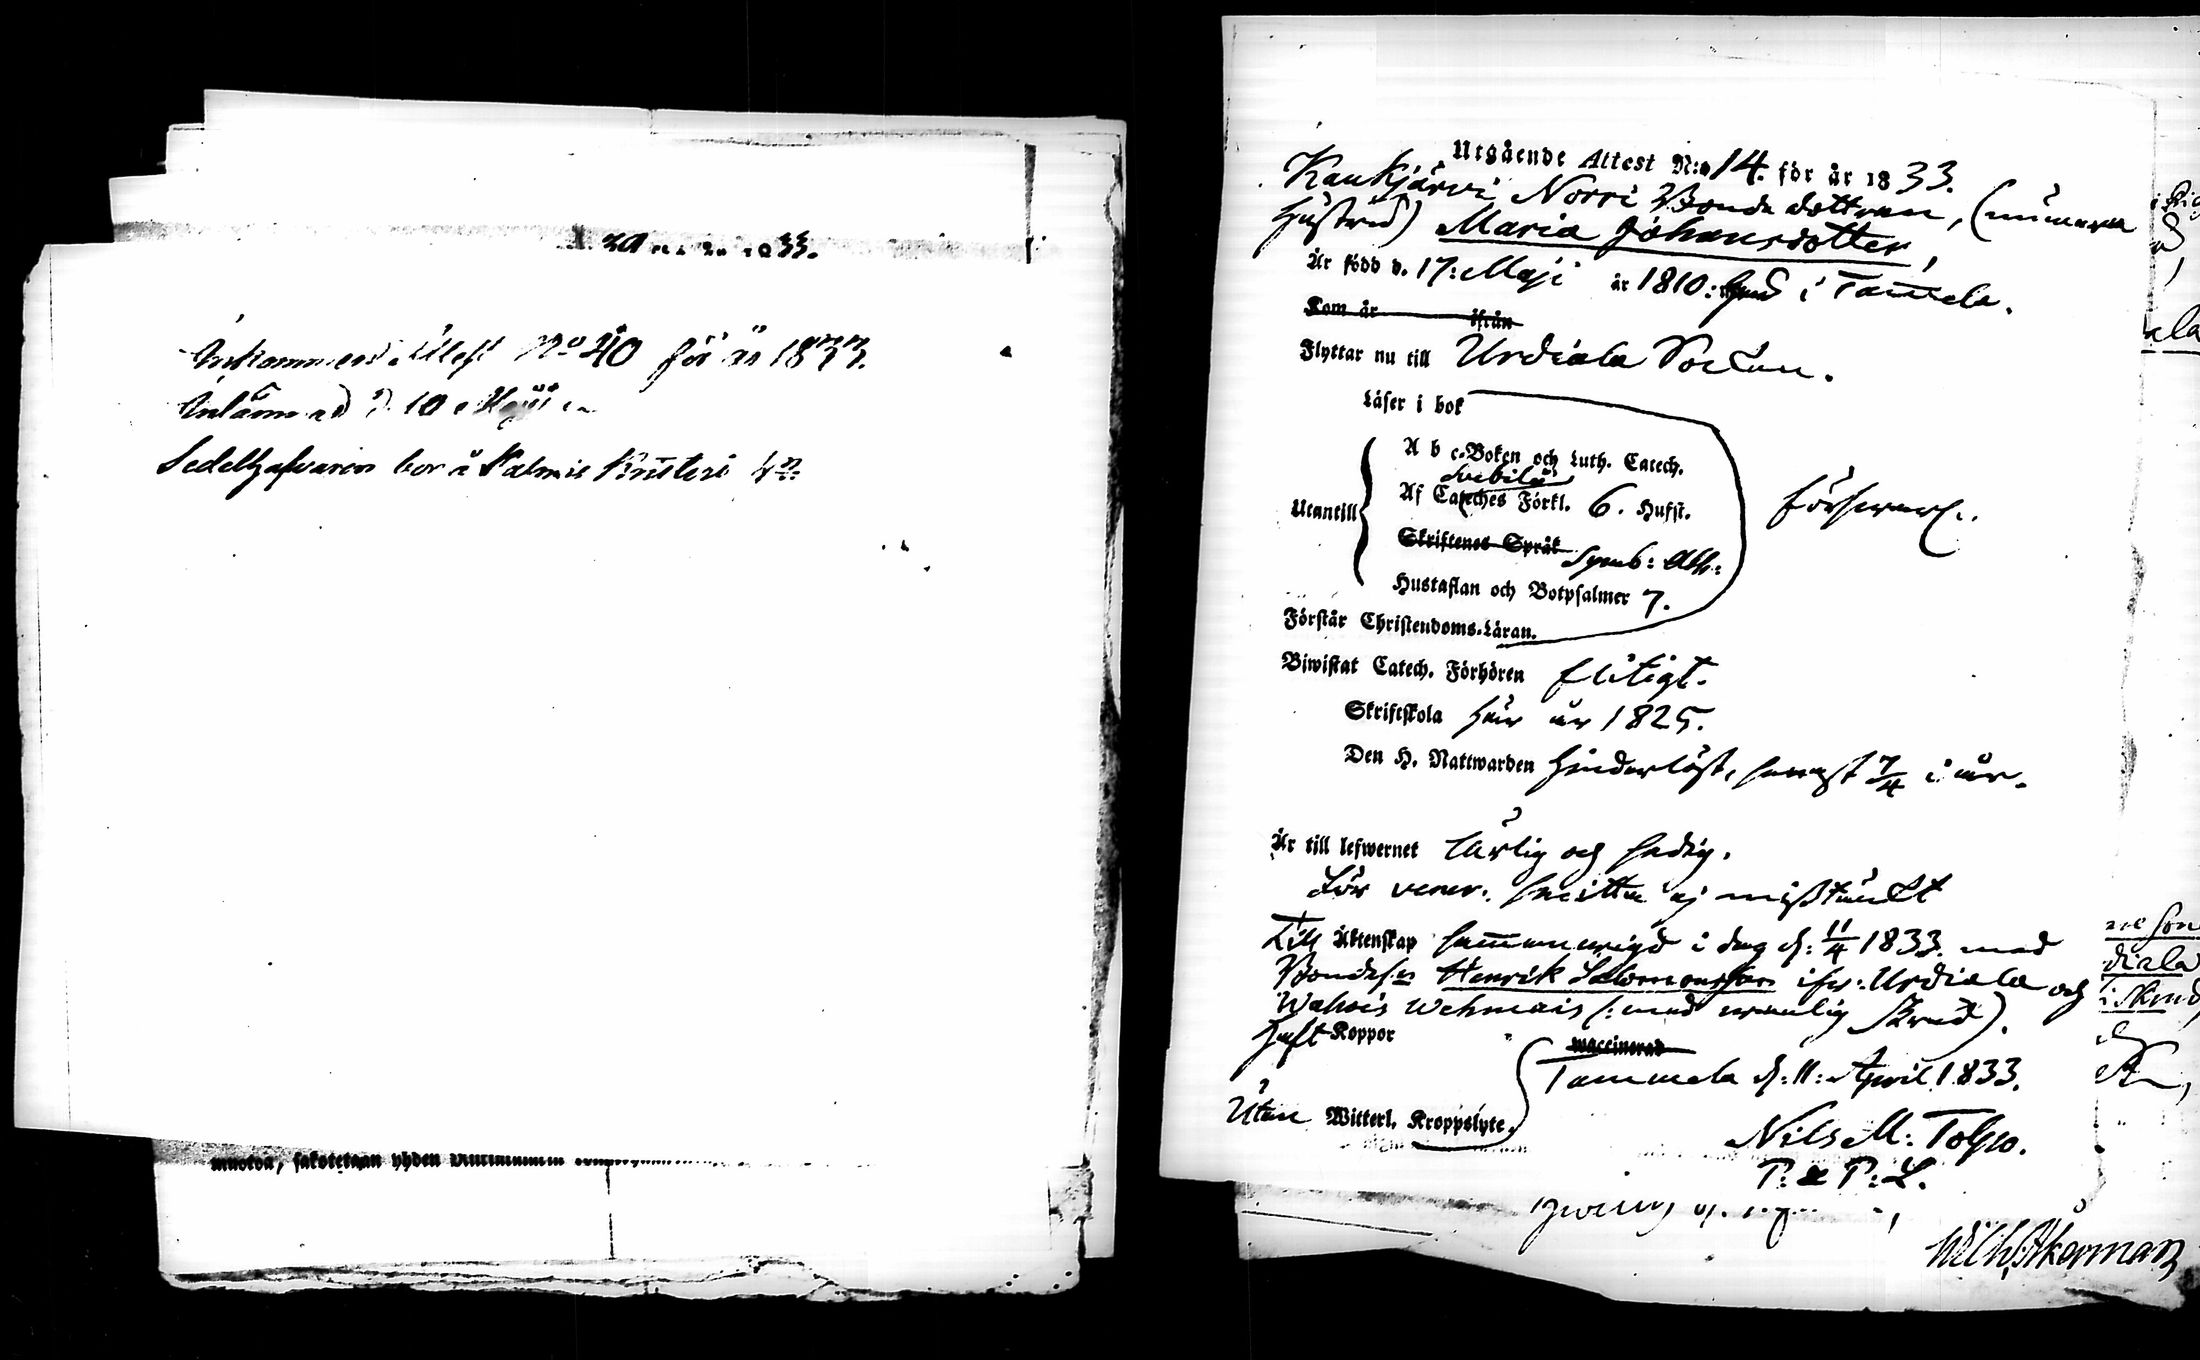 Inkommen Attest No 40 för år 1833.
Inlämnad d. 10 Maji
Sedelhafvaren bor å
Utgående Attest N:o 14. för år 1833.
Kaukjärvi Norri Bonde dottren, (numera
hustru) Maria Johansdotter,
Är född d. 17: Maji år 1810: i Tammela.
Kom år ifrån
Flyttar nu till Urdiala Socken.
Läser i bok
A b c-Boken och Luth. Catech.
Svebilii
Utantill Af Cateches Förkl. 6. Hufst. försvarl.
Skriftenes Språk Symb: Ath:
Hustaflan och Botpsalmer 7.
Förstår Christendoms-Läran.
Biwistat Catech. Förhören flitigt.
Skriftskola här år 1825.
Den H. Nattwarden hinderlöst, senast 7/4 i år.
Är till lefwernet ärlig och sedig.
För vener. smitta ej misstänkt
Till Äktenskap sammanvigd i dag d: 11/4 1833. med
Bondes. Henrik Salomonsson ifr: Urdiala och
Wahois Wehmais (: med vanlig Skrud).
Haft Koppor waccinerad
Tammela d: 11: April 1833.
Utan Witterl. Kroppslyte.
Nils M: Tolpo.
P: & P: L.
Åkerman